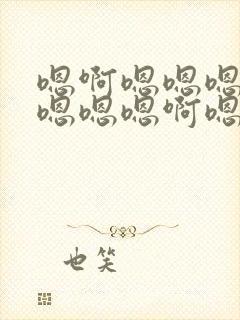 嗯啊嗯嗯嗯
嗯嗯嗯啊嗯
也笑